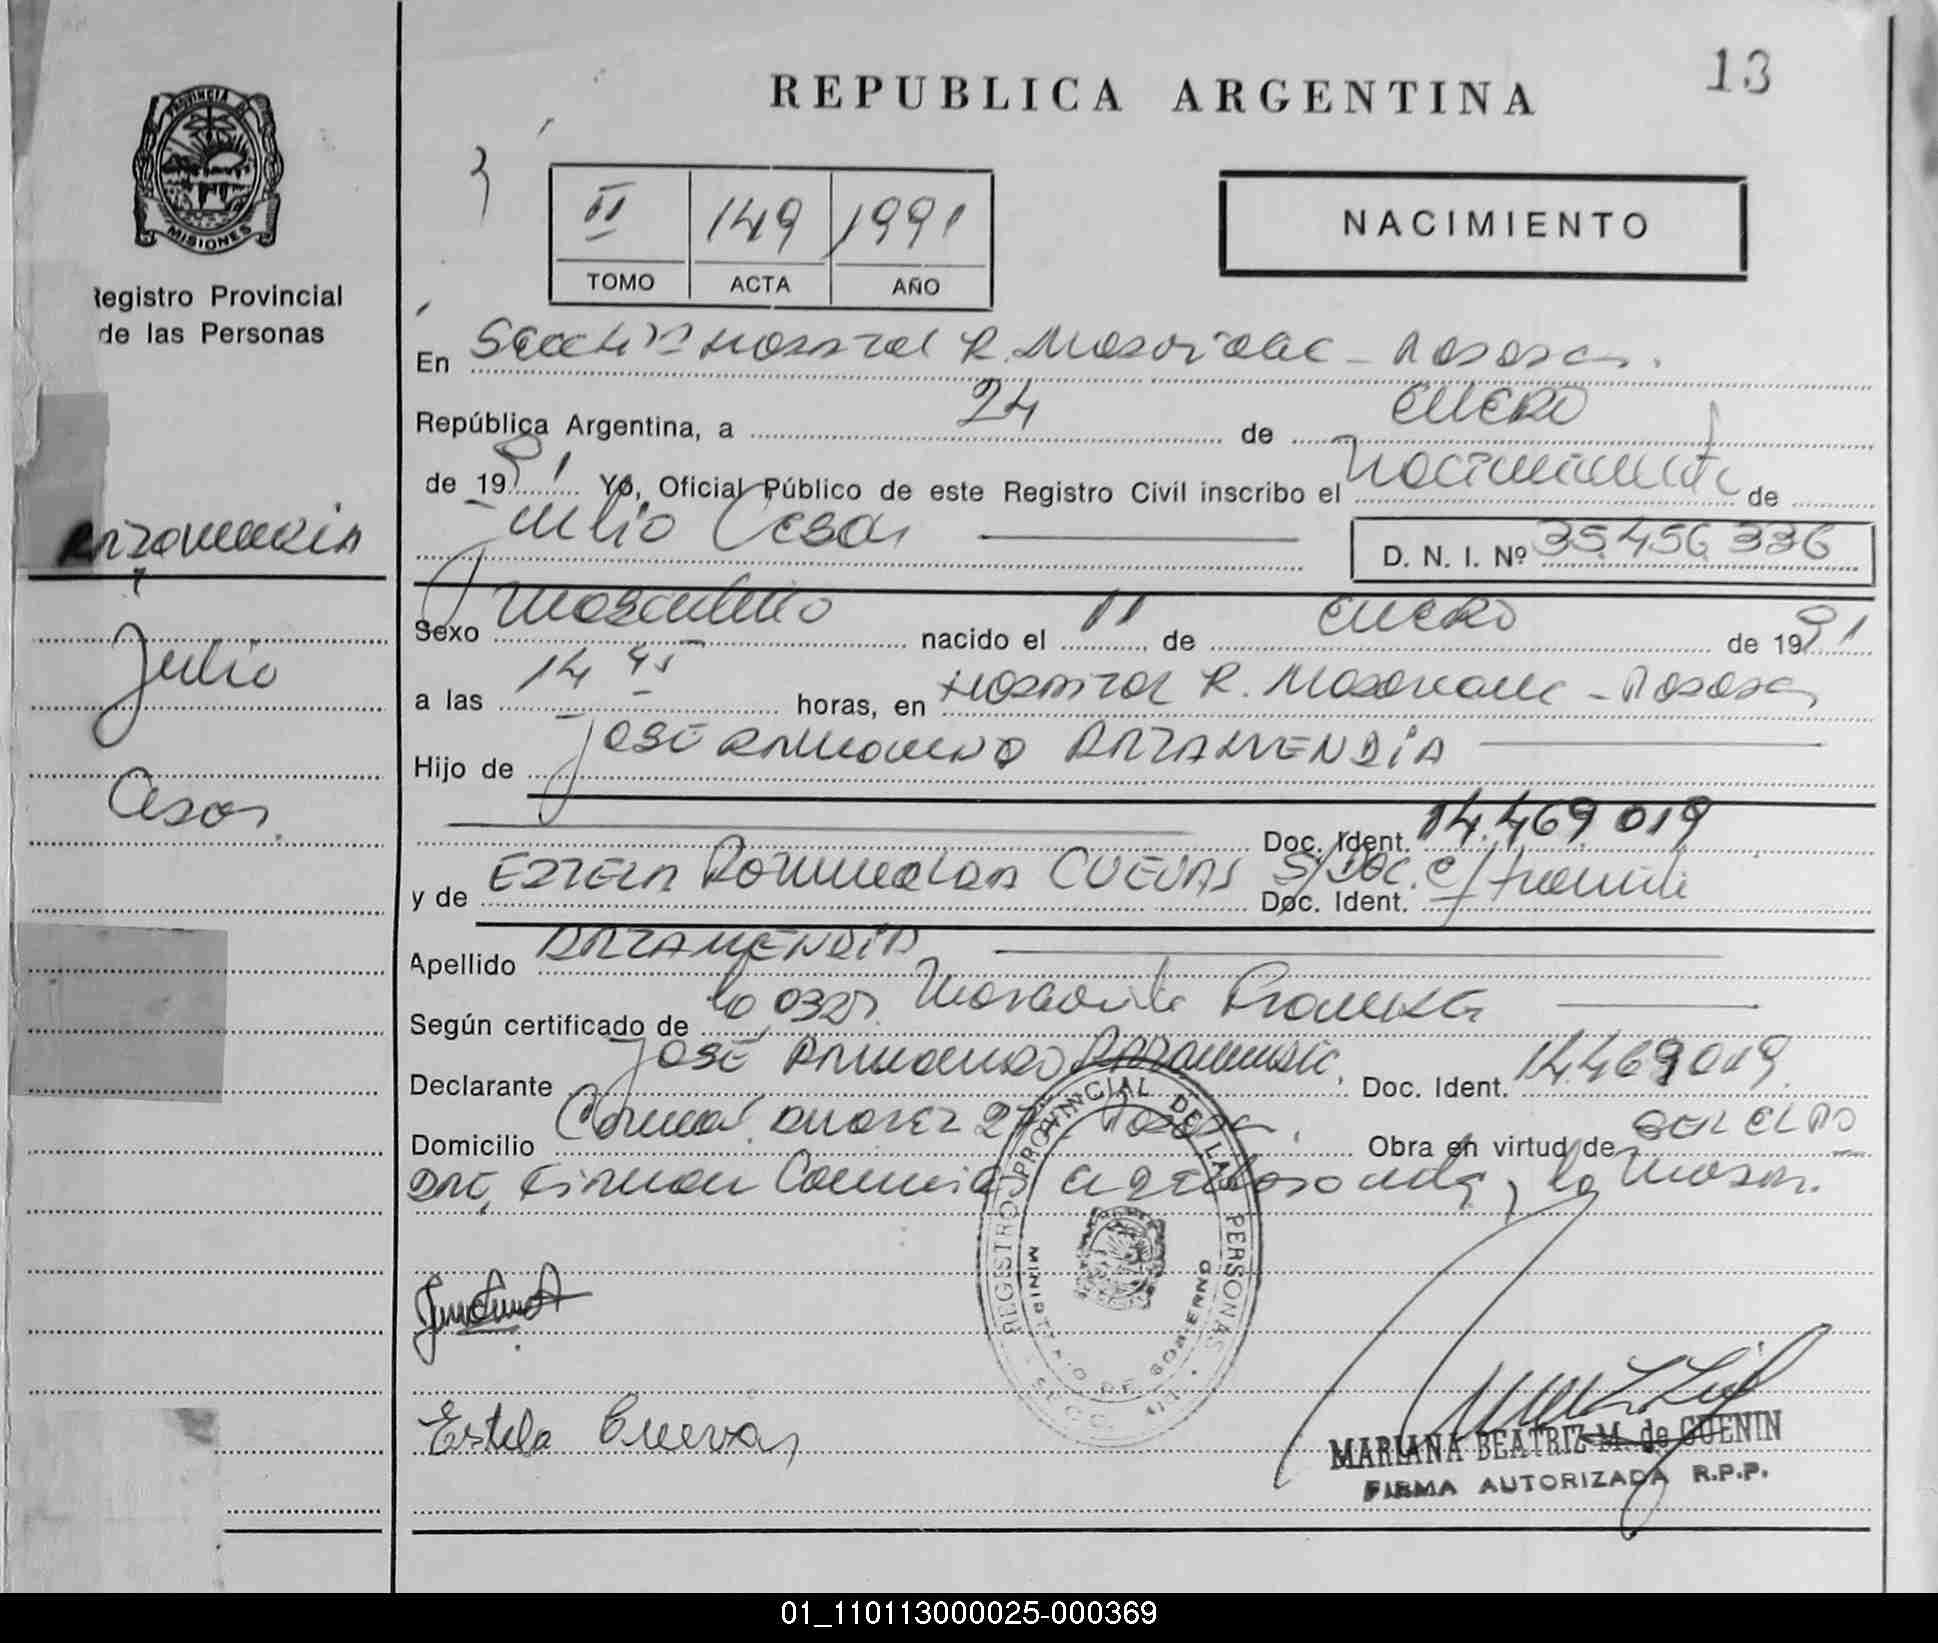 13
REPUBLICA ARGENTINA
PROVINCIA DE
MISIONES
Registro Provincial
de las Personas
II 149 1991
TOMO ACTA AÑO
NACIMIENTO
En Hospital R. Madariaga - Posadas.
República Argentina, a 24 de ENERO
de 1991 Yo, Oficial Público de este Registro Civil inscribo el nacimiento de
Julio Cesar D. N. I. Nº 35.456.336
Arzamendia
Julio
Cesar.
Sexo masculino nacido el 11 de ENERO de 1991
a las 14 45 horas, en Hospital R. Madariaga - Posadas
Hijo de JOSÉ ARMANDO ARZAMENDIA
Doc. Ident. 14.469.019
y de ESTELA ROMUALDA CUEVAS Doc. Ident. S/DOC. e/tramite
Apellido ARZAMENDIA
Según certificado de la
Declarante JOSÉ ARMANDO ARZAMENDIA. Doc. Ident. 14.469.019.
Domicilio Obra en virtud de
REGISTRO PROVINCIAL DE LAS PERSONAS
MINISTERIO DE GOBIERNO
Estela Cuevas
MARIANA BEATRIZ M. de GUENIN
FIRMA AUTORIZADA R.P.P.
01_110113000025-000369